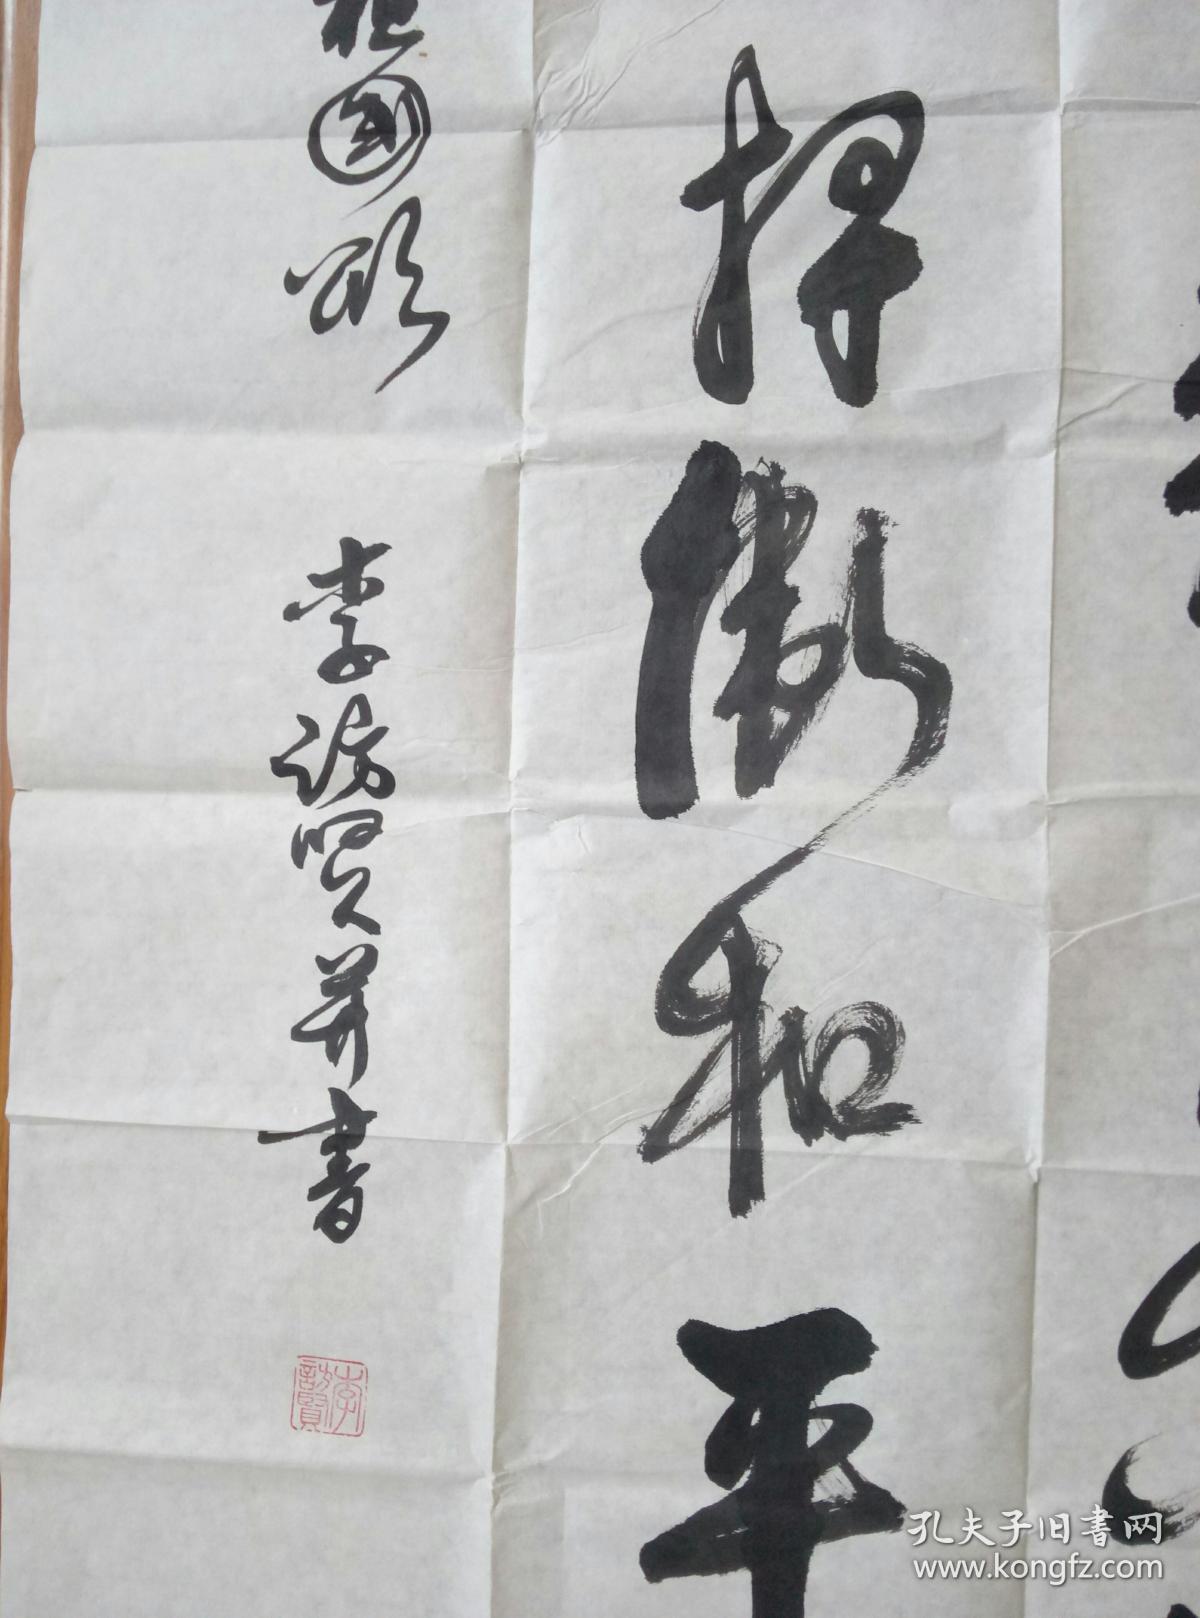 捍衛和平
祖國頌
李訪賢并書
李訪賢
孔夫子旧書网
www.kongfz.com